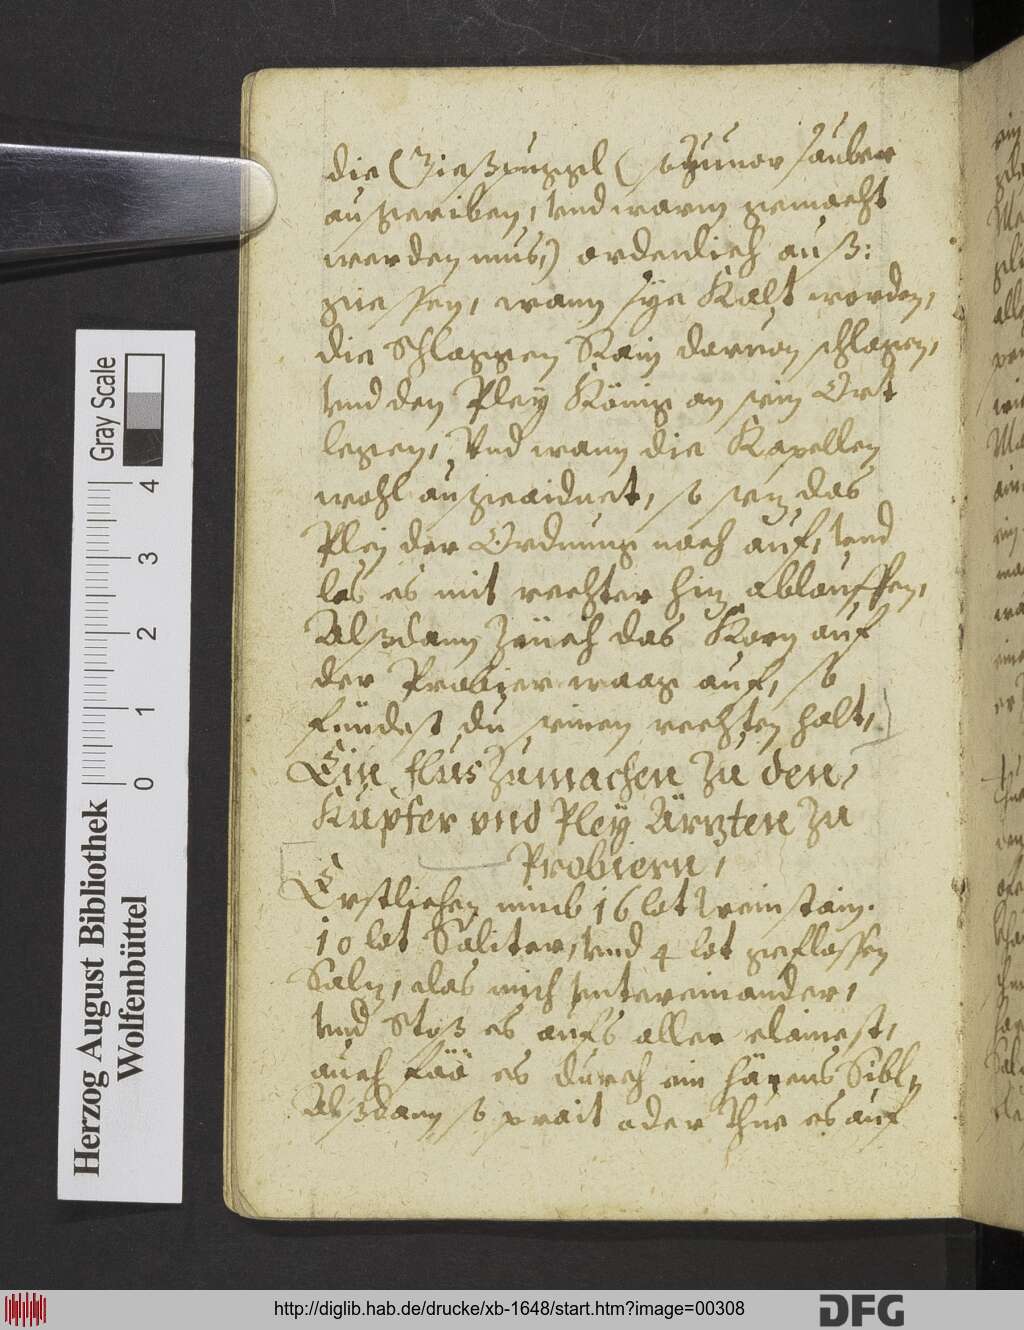 die Gießpuggl (so Zuuor sauber
außgeriben, vnd warm gemacht
werden mus,) ordenlich auß:
giessen, wann sye Kalt worden,
die Schlaggen Rain daruon schlagen,
vnd den Pley König an sein Ort
legen, Vnd wann die Kapellen
wohl außgeaidnet, so sez das
Pley der Ordnung nach auf, vnd
las es mit rechter hiz ablauffen,
Alßdann Züch das Korn auf
der Probier waag auf, so
findest du seinen rechten halt,
Ein flus Zumachen Zu den
Kupfer vnd Pley Ärtzten Zu
Probiern,
Erstlichen nimb 16 lot weinstain.
10 lot Saliter, vnd 4 lot geflossen
Salz, das misch vntereinander,
vnd Stoß es aufs aller clainest,
auch fää es durch ein härens Sibl,
Alßdann so prait oder Thue es auf
Gray Scale
4
3
2
1
0
Herzog August Bibliothek
Wolfenbüttel
http://diglib.hab.de/drucke/xb-1648/start.htm?image=00308
DFG